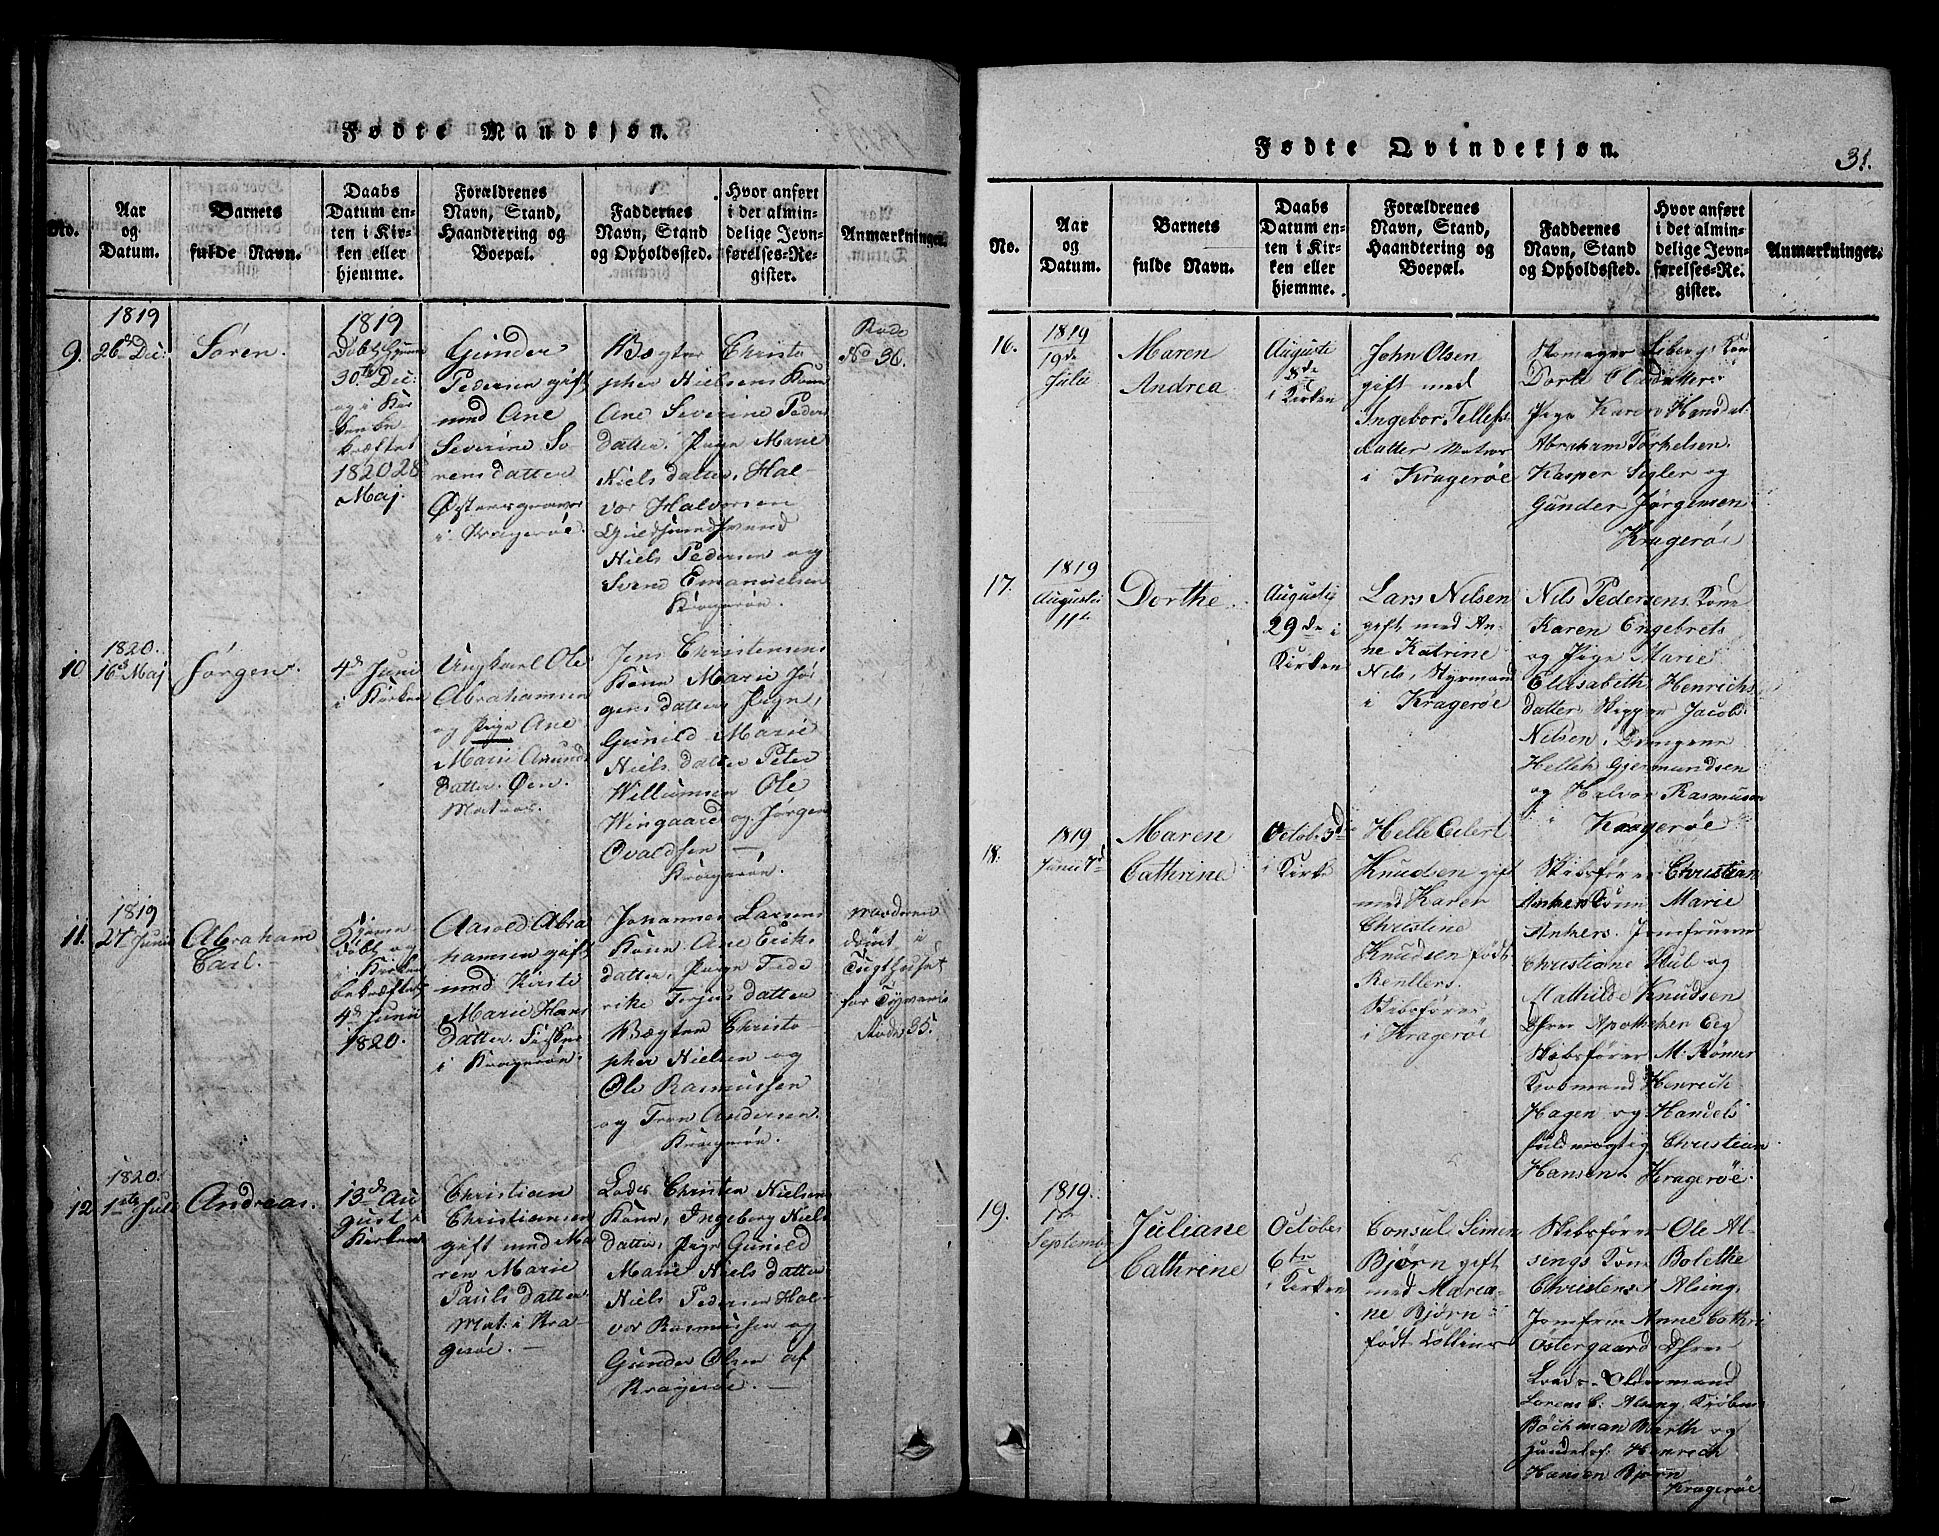 Fødte Mandkjøn.
No.
Aar
og
Datum.
Barnets
fulde Navn.
Daabs
Datum en-
ten i Kir-
ken eller
hjemme.
Forældrenes
Navn, Stand,
Haandtering og
Boepæl.
Faddernes
Navn, Stand
og Opholdssted.
Hvor anført
i det almin-
delige Jevn-
førelses-Re-
gister.
Anmærkninger.
9.
1819
26 Dec:
Søren.
1819
30te Dec:
og i Kir
ken be
kræftet
1820 28
Maj.
Gunder
Pedersen gift
med Ane
Severine Sø
rensdatter
i Kragerøe.
Christo-
pher Nielsens Kone
Ane Severine Peders
datter. Pige Marie
Niels datter. Hal-
vor Halvorsen
Niels Pedersen og
Svend Emanuelsen
Kragerøe.
No 36.
10
1820.
16 Maj
Jørgen.
4de Juni
i Kirken
Ungkarl Ole
Abrahamsen
og Pige Ane
Marie Amund
datter. Øen.
Matros.
Jens Christensens
Kone Marie Jør
gensdatter Pige,
Gunild Marie
Niels datter Peter
Willumsen Ole
Wingaard og Jørgen
Ovaldsen —
Kragerøe.
11.
1819
27 Junii
Abraham
Carl.
Hjemme
døbt og
i Kirken
bekræftet
4de Junii
1820.
Aasold Abra
hamsen gift
med Kirste
Marie Hans
datter.
i Kragerøe.
Johannes Larsens
Kone Ane Eriks
datter, Pige Fede
rike Terjus datter
Christo-
pher Nielsen og
Ole Rasmussen
og Tron Andersen.
Kragerøe.
dømt i
Tugthuset
for Tyverie
12
1820.
1ste Juli
Andreas.
13de Au
gust i
Kirken
Christian
Christiansen
gift med Ma
ren Marie
Pauls datter
Mat: i Kra
gerøe. —
Lods Christen Nielsens
Kone, Ingeborg Niels
datter, Pige Gunild
Marie Niels datter
Niels Pedersen Hal-
vor Rasmussen og
Gunder Olsen af
Kragerøe. —
Fødte Qvindekjøn.
31.
No.
Aar
og
Datum.
Barnets
fulde Navn.
Daabs
Datum en-
ten i Kir-
ken eller
hjemme.
Forældrenes
Navn, Stand,
Haandtering og
Boepæl.
Faddernes
Navn, Stand
og Opholdssted.
Hvor anført
i det almin-
delige Jevn-
førelses-Re-
gister.
Anmærkninger.
16.
1819
19de
Julii
Maren
Andrea
Augusti
8de
i Kirken
John Olsen
gift med
Ingebor Tellefs
datter Matros
i Kragerøe
Skomager Kone
Dorte Olsdatter
Pige Karen
Abraham Torkelsen
Kasper Sigler og
Gunder Jørgensen
Kragerøe
17.
1819
Augusti
11te
Dorthe
Augusti
29de i
Kirken
Lars Nilsen
gift med An-
ne Katrine
Nils, Styrmand
i Kragerøe
Nils Pedersens Kone
Karen Engebrets
og Pige Marie
Elisabeth Henrichs
datter Skipper Jacob
Nilsen,
Helleh Gjermundsen
og Halvor Rasmusen
Kragerøe
18.
1819
Junii 7d
Maren
Cathrine
Octob. 3d
i Kirke
Helle Eilert
Knudsen gift
med Karen
Christine
Knudsen født
Skibsfører
i Kragerøe
Skibsfører Christian
Ankers Kone Marie
Ankers. Jomfruerne
Christiane og
Mathilde Knudsen
Dhrr Apotheker Eeg
Skibsfører M: Rømer
Kiøbmand Henrich
Hagen og Handels
fuldmægtig Christian
Hansen. Kragerøe
19.
1819.
1te
Septemb
Juliane
Cathrine
October
6te
i Kirken
Consul Simen
Bjørn gift
med Maria-
ne Bjørn
født
Skibsfører Ole Al-
sings Kone Bolethe
Christense Alsing,
Jomfrue Anne Cathri
Østergaard Dhrr
Lods-Oldermand
Lorens C: Alsing,
Bøchman Barth og
Henrich
Hansen Bjørn
Kragerøe